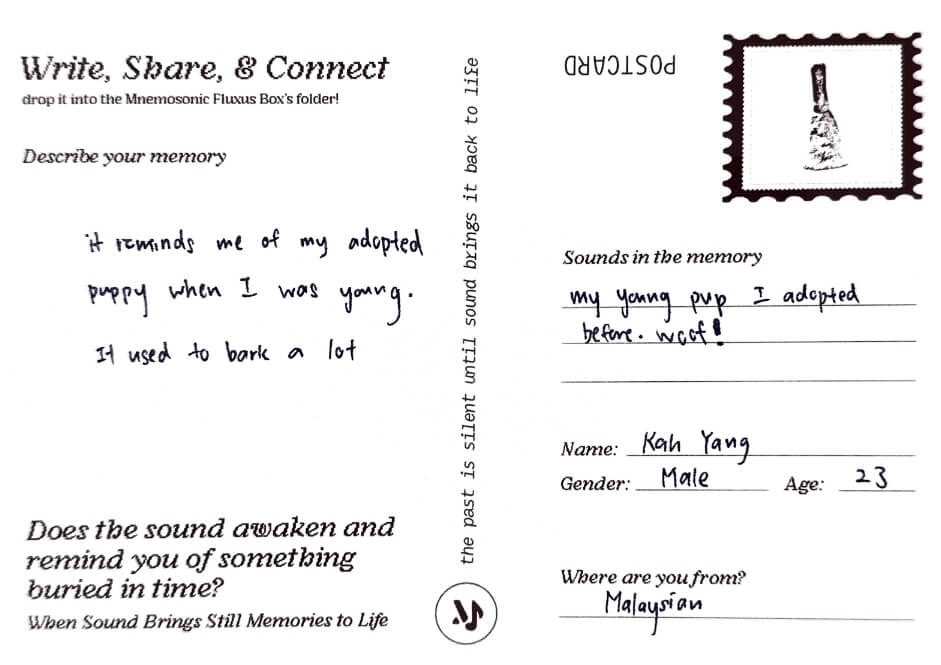 Write, Share, & Connect
drop it into the Mnemosonic Fluxus Box's folder!
Describe your memory
it reminds me of my adopted
puppy when I was young.
It used to bark a lot
Does the sound awaken and
remind you of something
buried in time?
When Sound Brings Still Memories to Life
the past is silent until sound brings it back to life
POSTCARD
Sounds in the memory
my young pup I adopted
before. woof!
Name: Kah Yang
Gender: Male Age: 23
Where are you from?
Malaysian